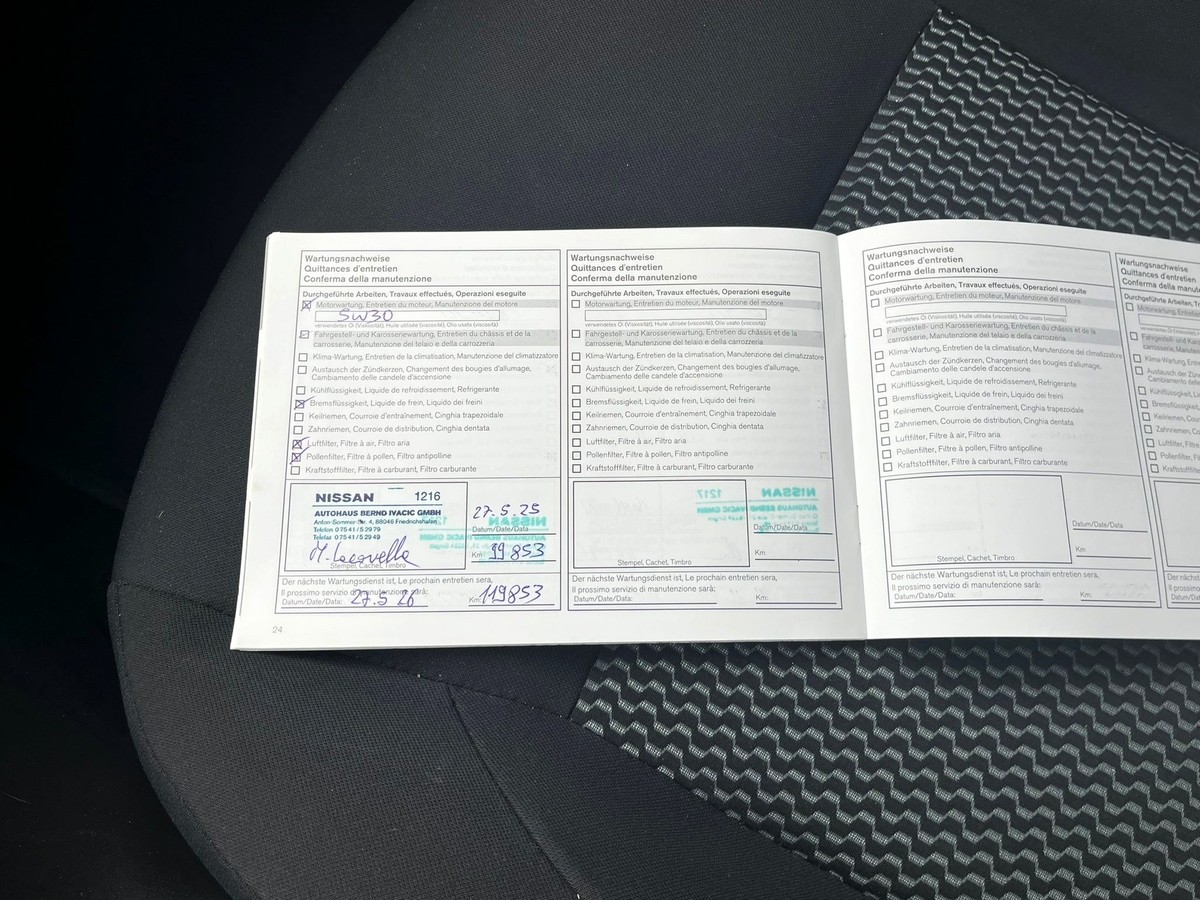 Wartungsnachweise
Quittances d'entretien
Conferma della manutenzione
Durchgeführte Arbeiten, Travaux effectués, Operazioni eseguite
Motorwartung, Entretien du moteur, Manutenzione del motore
5W30
verwendetes Öl (Viskosität), Huile utilisée (viscosité), Olio usato (viscosità)
Fahrgestell- und Karosseriewartung, Entretien du châssis et de la
carrosserie, Manutenzione del telaio e della carrozzeria
Klima-Wartung, Entretien de la climatisation, Manutenzione del climatizzatore
Austausch der Zündkerzen, Changement des bougies d'allumage,
Cambiamento delle candele d'accensione
Kühlflüssigkeit, Liquide de refroidissement, Refrigerante
Bremsflüssigkeit, Liquide de frein, Liquido dei freini
Keilriemen, Courroie d'entraînement, Cinghia trapezoidale
Zahnriemen, Courroie de distribution, Cinghia dentata
Luftfilter, Filtre à air, Filtro aria
Pollenfilter, Filtre à pollen, Filtro antipolline
Kraftstofffilter, Filtre à carburant, Filtro carburante
NISSAN 1216
AUTOHAUS BERND IVACIC GMBH
Anton-Sommer-Str. 4, 88046 Friedrichshafen
Telefon 0 75 41 / 5 29 79
Telefax 0 75 41 / 5 29 49
Stempel, Cachet, Timbro
27.5.25
Datum/Date/Data
Km 99853
Der nächste Wartungsdienst ist, Le prochain entretien sera,
Il prossimo servizio di manutenzione sarà:
Datum/Date/Data: 27.5 26 Km: 119853
24
Wartungsnachweise
Quittances d'entretien
Conferma della manutenzione
Durchgeführte Arbeiten, Travaux effectués, Operazioni eseguite
Motorwartung, Entretien du moteur, Manutenzione del motore
verwendetes Öl (Viskosität), Huile utilisée (viscosité), Olio usato (viscosità)
Fahrgestell- und Karosseriewartung, Entretien du châssis et de la
carrosserie, Manutenzione del telaio e della carrozzeria
Klima-Wartung, Entretien de la climatisation, Manutenzione del climatizzatore
Austausch der Zündkerzen, Changement des bougies d'allumage,
Cambiamento delle candele d'accensione
Kühlflüssigkeit, Liquide de refroidissement, Refrigerante
Bremsflüssigkeit, Liquide de frein, Liquido dei freini
Keilriemen, Courroie d'entraînement, Cinghia trapezoidale
Zahnriemen, Courroie de distribution, Cinghia dentata
Luftfilter, Filtre à air, Filtro aria
Pollenfilter, Filtre à pollen, Filtro antipolline
Kraftstofffilter, Filtre à carburant, Filtro carburante
Stempel, Cachet, Timbro
Datum/Date/Data
Km
Der nächste Wartungsdienst ist, Le prochain entretien sera,
Il prossimo servizio di manutenzione sarà:
Datum/Date/Data: Km:
Wartungsnachweise
Quittances d'entretien
Conferma della manutenzione
Durchgeführte Arbeiten, Travaux effectués, Operazioni eseguite
Motorwartung, Entretien du moteur, Manutenzione del motore
verwendetes Öl (Viskosität), Huile utilisée (viscosité), Olio usato (viscosità)
Fahrgestell- und Karosseriewartung, Entretien du châssis et de la
carrosserie, Manutenzione del telaio e della carrozzeria
Klima-Wartung, Entretien de la climatisation, Manutenzione del climatizzatore
Austausch der Zündkerzen, Changement des bougies d'allumage,
Cambiamento delle candele d'accensione
Kühlflüssigkeit, Liquide de refroidissement, Refrigerante
Bremsflüssigkeit, Liquide de frein, Liquido dei freini
Keilriemen, Courroie d'entraînement, Cinghia trapezoidale
Zahnriemen, Courroie de distribution, Cinghia dentata
Luftfilter, Filtre à air, Filtro aria
Pollenfilter, Filtre à pollen, Filtro antipolline
Kraftstofffilter, Filtre à carburant, Filtro carburante
Stempel, Cachet, Timbro
Datum/Date/Data
Km
Der nächste Wartungsdienst ist, Le prochain entretien sera,
Il prossimo servizio di manutenzione sarà:
Datum/Date/Data: Km:
Wartungsnachweise
Quittances d'entretien
Conferma della manu
Durchgeführte Arbeiten
Motorwartung, E
verwendetes Öl
Fahrgestell- und Ka
carrosserie, Manute
Klima-Wartung, Ent
Austausch der Zün
Cambiamento delle
Kühlflüssigkeit, Li
Bremsflüssigkeit,
Keilriemen, Cour
Zahnriemen, Co
Luftfilter, Filtre
Pollenfilter, Filt
Kraftstofffilter
Der nächste
Il prossimo
Datum/Dat